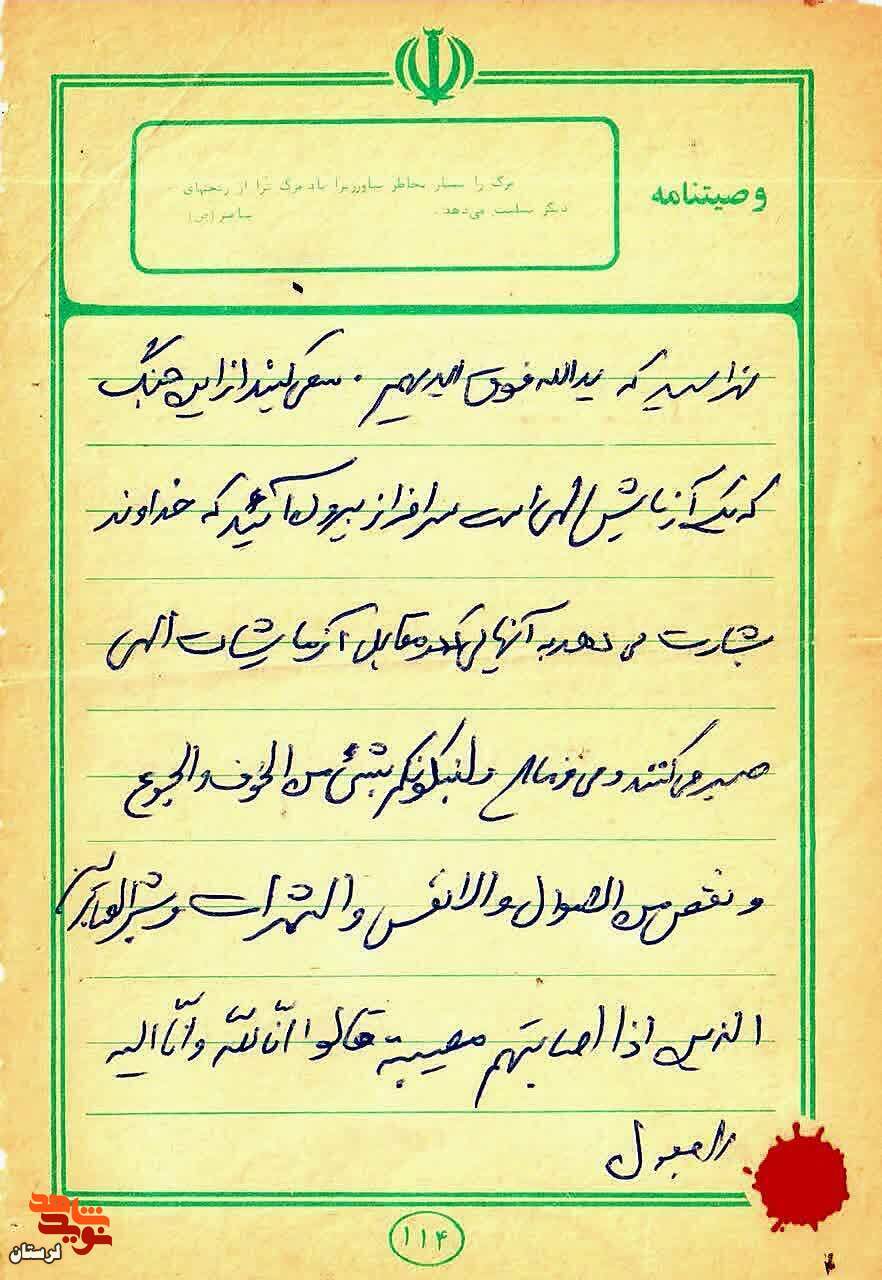 وصیتنامه
مرگ را بسیار بخاطر بیاورید زیرا یاد مرگ ترا از رنجهای
دیگر سلامت می‌دهد. پیامبر (ص)
نهراسید که یدالله فوق ایدیهم. سعی کنید از این جنگ
که یک آزمایش الهی است سرافراز بیرون آئید که خداوند
بشارت می دهد به آنهایی که در مقابل آزمایشات الهی
صبر می کنند و می فرماید ولنبلونکم بشئ من الخوف والجوع
و نقص من الاموال والانفس والثمرات وبشر الصابرین
الذین اذا اصابتهم مصیبة قالوا انّا للّه وانّا الیه
راجعون
۱۱۴
نوید شاهد
لرستان